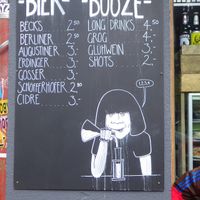 -BIER-
-BOOZE-
BECKS 2.50
BERLINER 2.50
AUGUSTINER 3.-
ERDINGER 3.-
GÖSSER 3.-
SCHÖFFERHOFER 2.80
CIDRE 3.-
LONG DRINKS 4.50
GROG 4.-
GLÜHWEIN 3.-
SHOTS 2.-